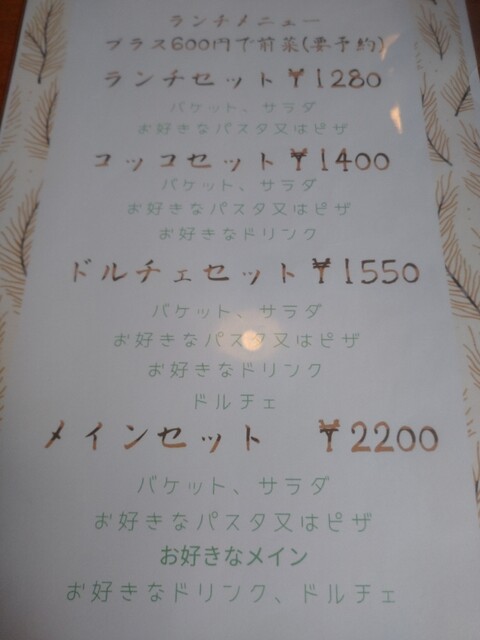 ランチメニュー
プラス600円で前菜(要予約)
ランチセット ¥1280
バケット、サラダ
お好きなパスタ又はピザ
コッコセット ¥1400
バケット、サラダ
お好きなパスタ又はピザ
お好きなドリンク
ドルチェセット ¥1550
バケット、サラダ
お好きなパスタ又はピザ
お好きなドリンク
ドルチェ
メインセット ¥2200
バケット、サラダ
お好きなパスタ又はピザ
お好きなメイン
お好きなドリンク、ドルチェ